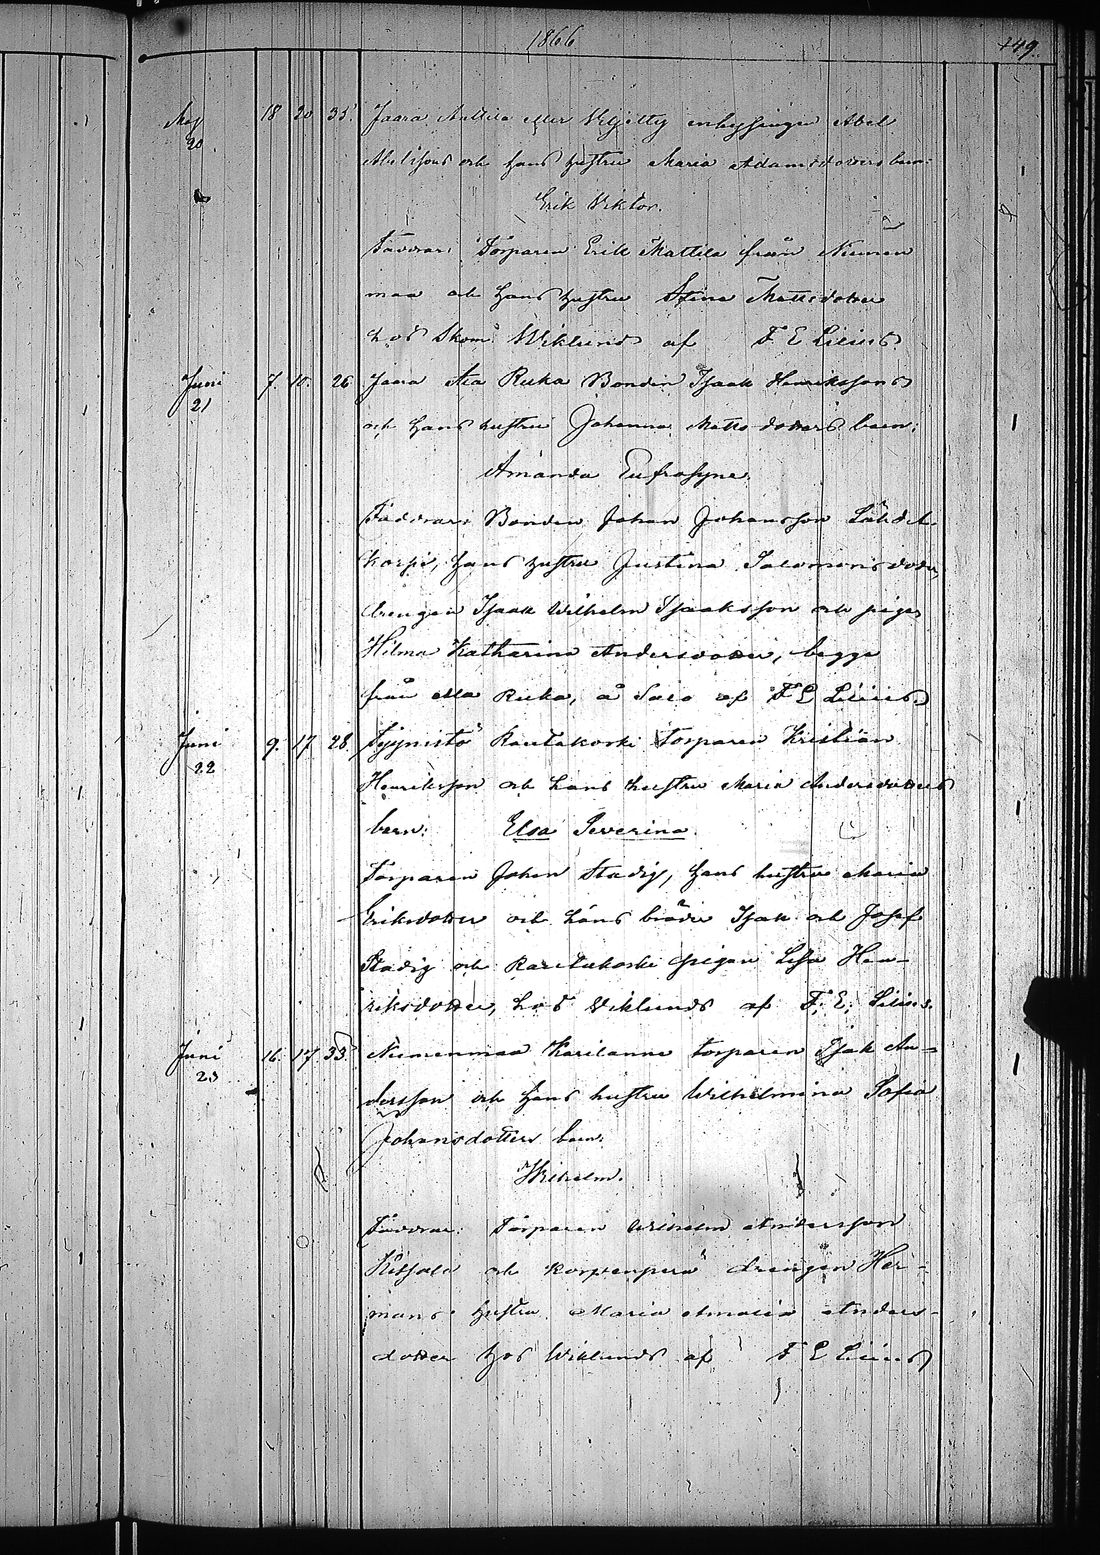 1866
149.
Maj 20 18 20 35. Jaara Anttila eller Viljetty inhysingen Abel
Abelssons och hans hustru Maria Adamsdotters barn:
Erik Viktor.
Faddrar: Torparen Erik Mattila från Niemen
maa och hans hustru Stina Mattsdotter
hos Skom. Wiklund af F E Lilius
Juni 21 7. 10. 26 Jaara Ala Ruka Bonden Isaak Henrikssons
och hans hustru Johanna Matts dotters barn:
Amanda Eufrosyne.
Faddrar: Bonden Johan Johansson Lähdet-
korpi, hans hustru Justina Salomonsdotter,
drengen Isaak Wilhelm Isaaksson och pigan
Hilma Katharina Andersdotter, begge
från Ala Ruka, å Salo af F E Lilius.
Juni 22 9. 17 28. Syynistö Rautakoski Torparen Kristian
Henriksson och hans hustru Maria Andersdotters
barn: Elsa Severina.
Torparen Johan Stadig, hans hustru Maria
Eriksdotter och hans bröder Isak och Josef
Stadig och Rautakoski pigan Lisa Hen-
riksdotter, hos Viklunds af F. E. Lilius.
Juni 23 16. 17. 33. Niemenmaa Karilanna torparen Isak An-
dersson och hans hustru Wilhelmina Sofia
Johansdotters barn:
Wilhelm.
Faddrar: Torparen Wilhelm Andersson
och Korpenperä drengen Her-
mans hustru Maria Amalia Anders-
dotter hos Wiklunds af F E Lilius